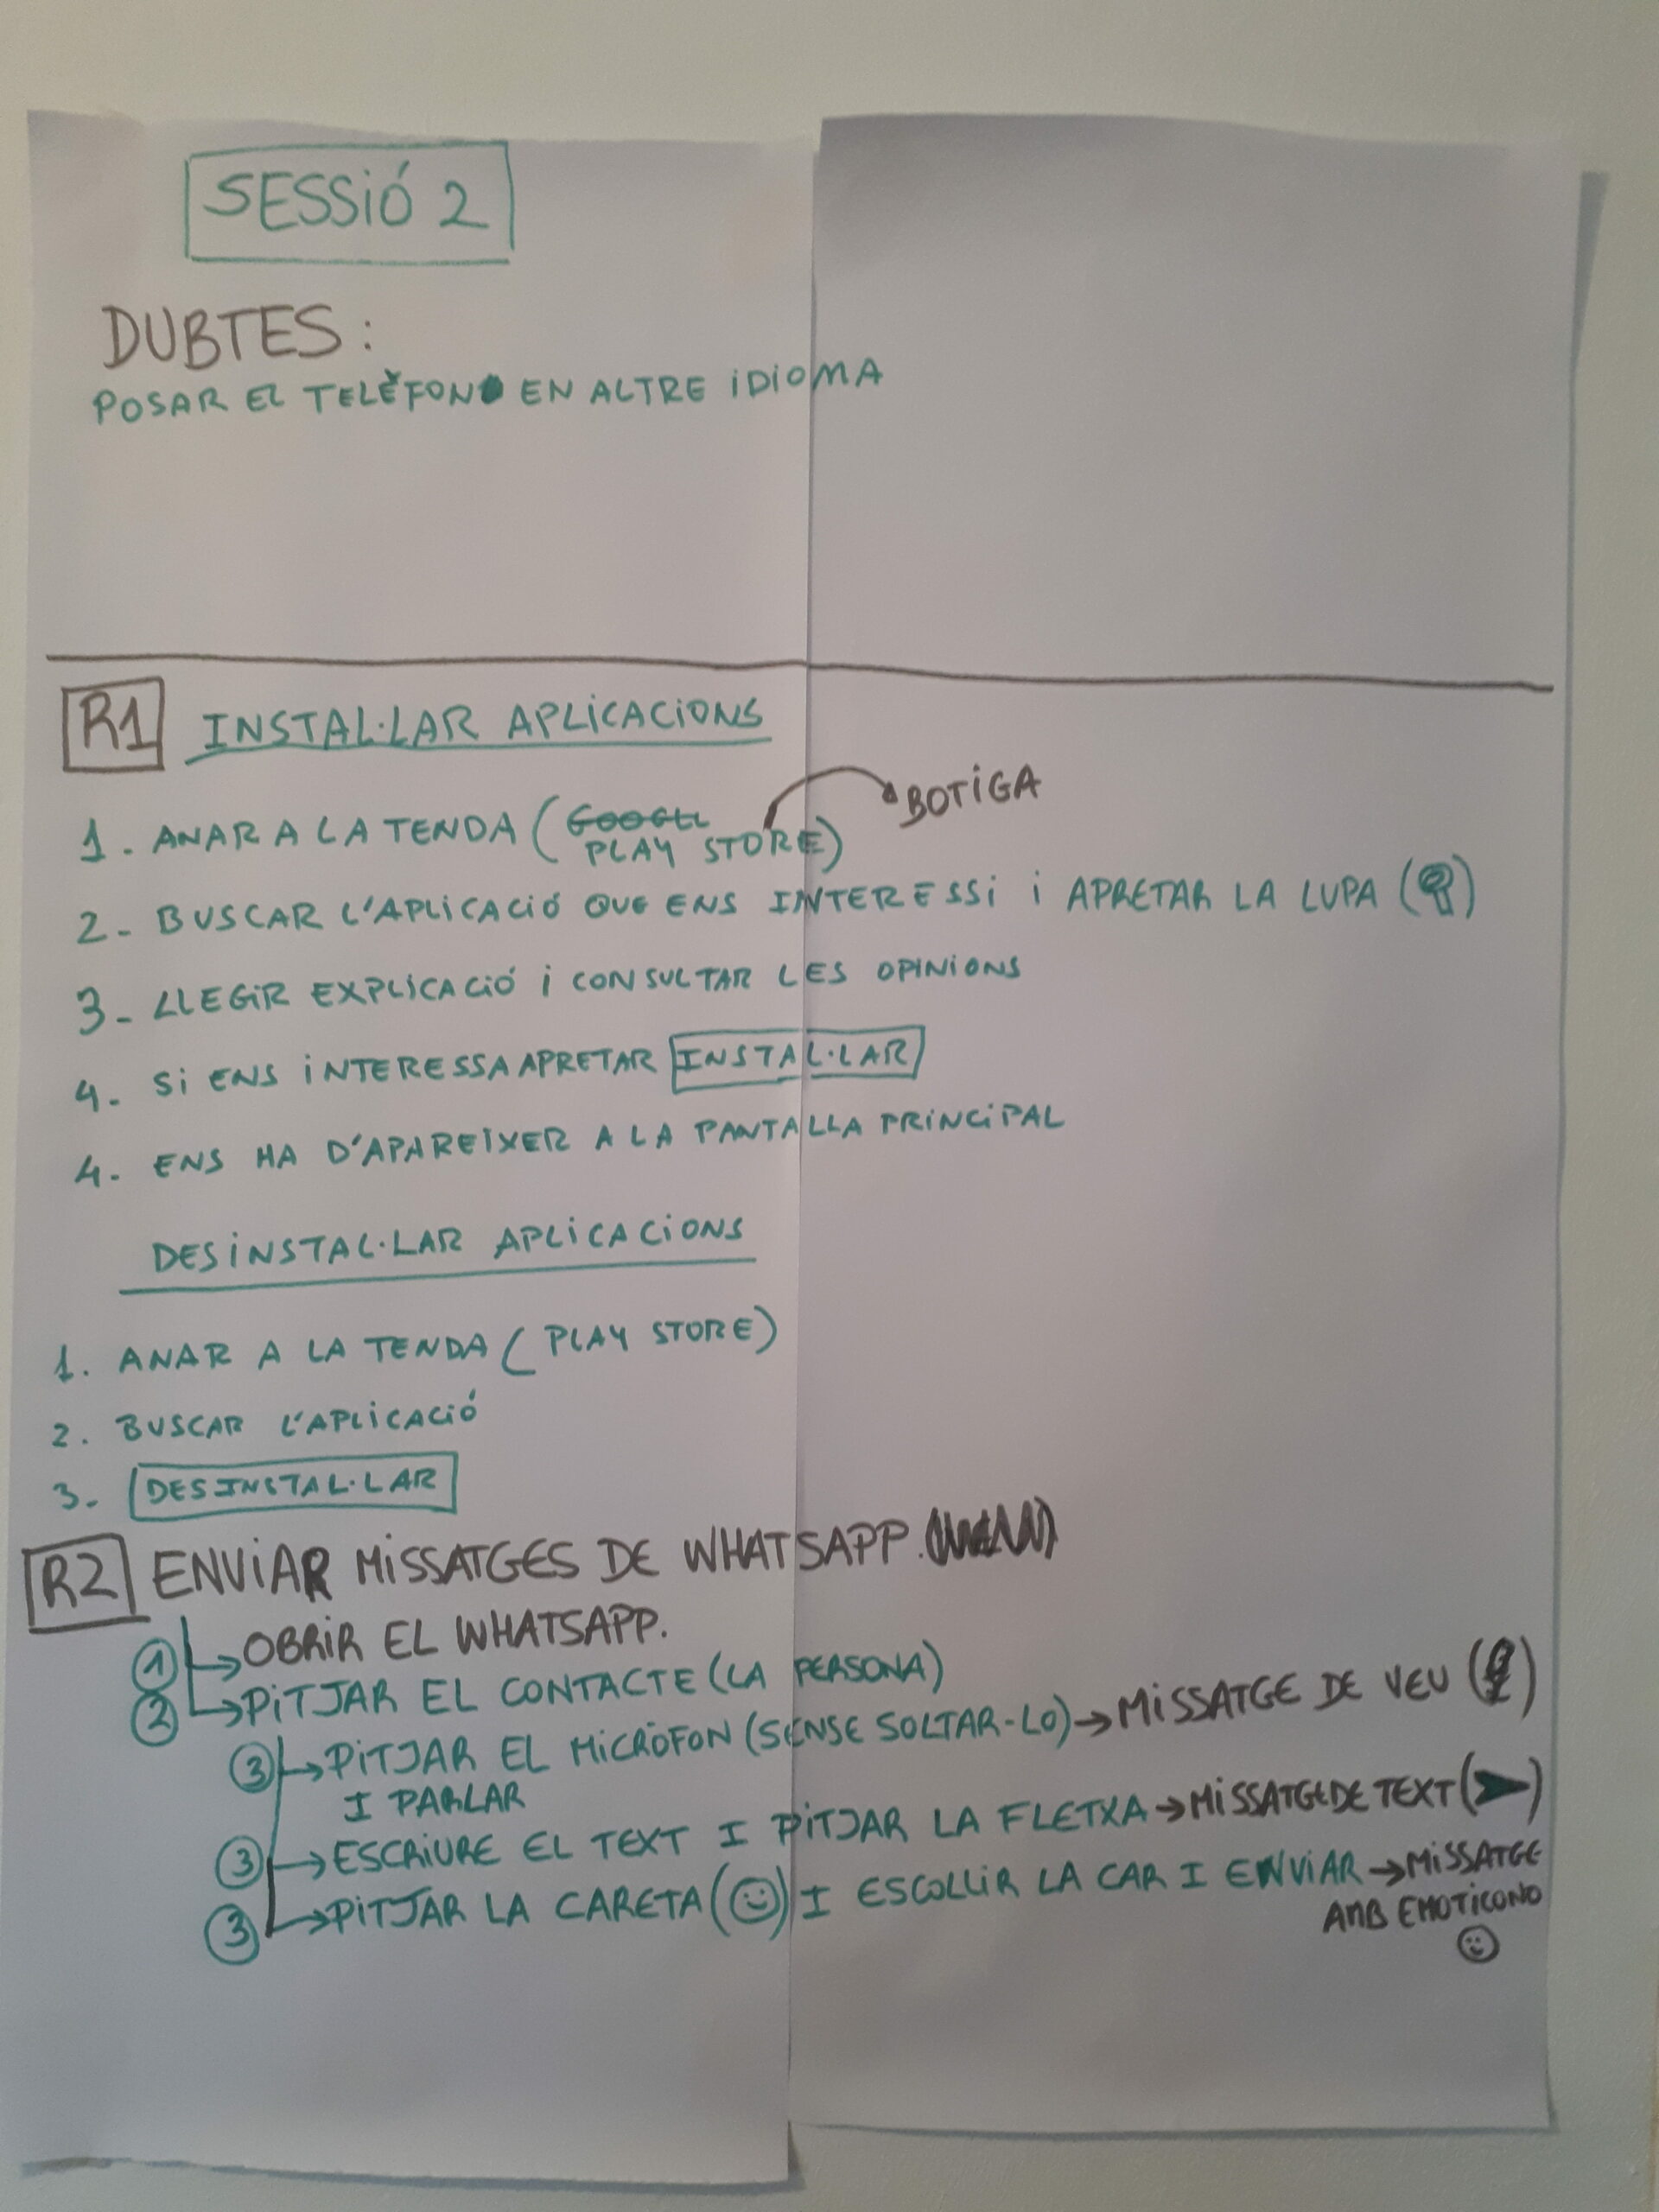 SESSIÓ 2
DUBTES:
POSAR EL TELÈFON EN ALTRE IDIOMA
R1 INSTAL·LAR APLICACIONS
BOTIGA
1. ANAR A LA TENDA (GOOGLE
PLAY STORE)
2- BUSCAR L'APLICACIÓ QUE ENS INTERESSI I APRETAR LA LUPA ( )
3- LLEGIR EXPLICACIÓ I CONSULTAR LES OPINIONS
4. SI ENS INTERESSA APRETAR INSTAL·LAR
4. ENS HA D'APAREIXER A LA PANTALLA PRINCIPAL
DESINSTAL·LAR APLICACIONS
1. ANAR A LA TENDA (PLAY STORE)
2. BUSCAR L'APLICACIÓ
3. DESINSTAL·LAR
R2 ENVIAR MISSATGES DE WHATSAPP.
1 → OBRIR EL WHATSAPP.
2 → PITJAR EL CONTACTE (LA PERSONA)
3 → PITJAR EL MICRÒFON (SENSE SOLTAR-LO) → MISSATGE DE VEU ( )
I PARLAR
3 → ESCRIURE EL TEXT I PITJAR LA FLETXA → MISSATGE DE TEXT (➤)
3 → PITJAR LA CARETA (☺) I ESCOLLIR LA CAR I ENVIAR → MISSATGE
AMB EMOTICONO
☺